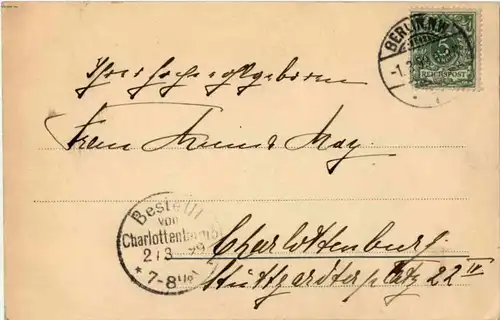 BERLIN N.W.
-1.3.99
REICHSPOST
Ihrer Hochwohlgeboren
Frau
May
Bestellt
von
Charlottenburg
2/3 99
* 7-8½
Charlottenburg.
Stuttgardterplatz 22 IV